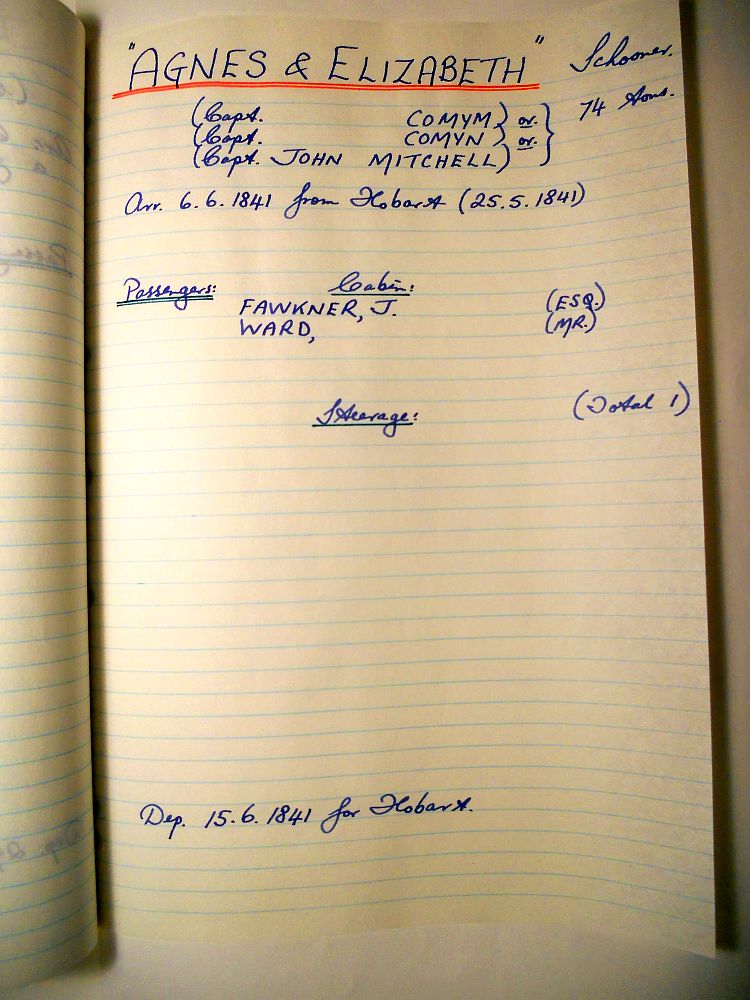 "AGNES & ELIZABETH" Schooner.
74 tons.
(Capt. COMYM) or.
(Capt. COMYN) or.
(Capt. JOHN MITCHELL)
Arr. 6.6.1841 from Hobart (25.5.1841)
Passengers: Cabin:
FAWKNER, J. (ESQ.)
WARD, (MR.)
Steerage: (Total 1)
Dep. 15.6.1841 for Hobart.